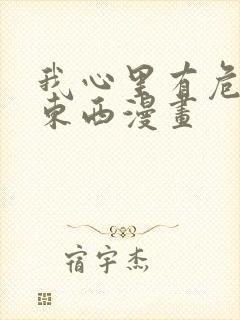 我心里有危
东西漫畫
宿宇杰